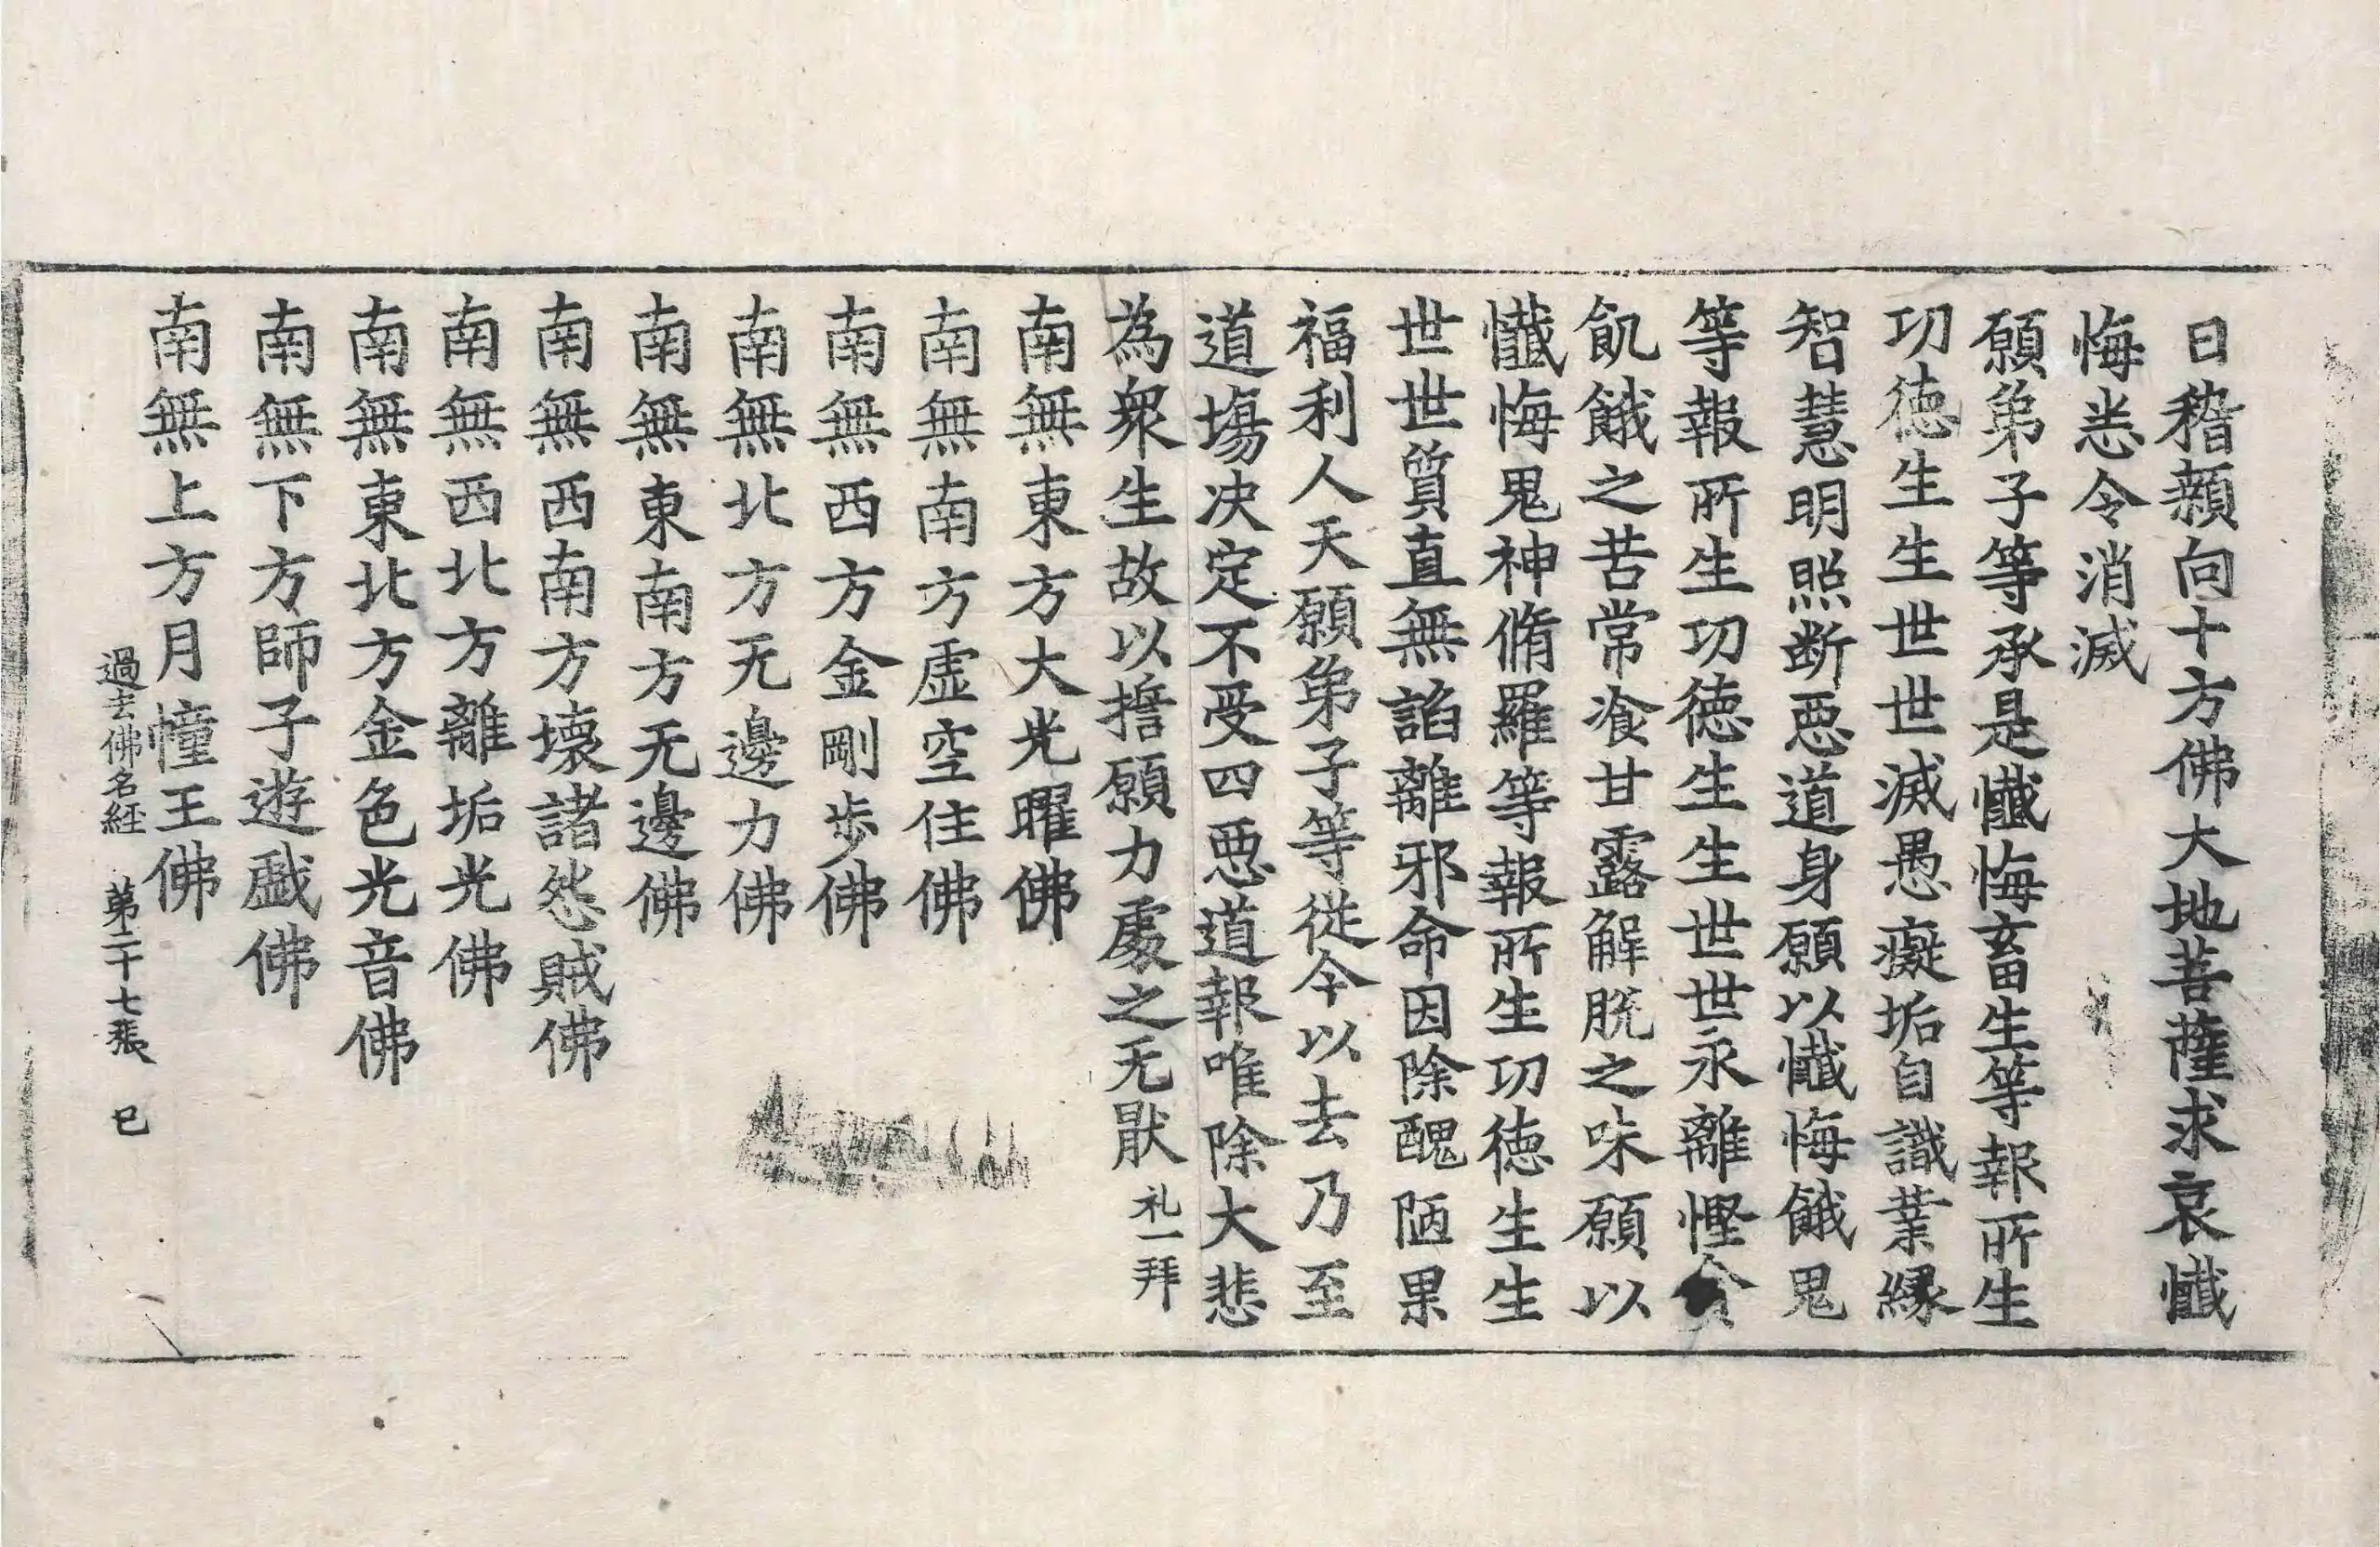 日稽顙向十方佛大地菩薩求哀懴
悔悉令消滅
願弟子等承是懴悔畜生等報所生
功徳生生世世滅愚癡垢自識業縁
智慧明照断惡道身願以懴悔餓鬼
等報所生功徳生生世世永離慳貪
飢餓之苦常飡甘露解脱之味願以
懴悔鬼神脩羅等報所生功徳生生
世世質直無諂離邪命因除醜陋果
福利人天願弟子等従今以去乃至
道場决定不受四惡道報唯除大悲
為衆生故以擔願力處之无猒 礼一拜
南無東方大光曜佛
南無南方虚空住佛
南無西方金剛歩佛
南無北方无邊力佛
南無東南方无邊佛
南無西南方壞諸怨賊佛
南無西北方離垢光佛
南無東北方金色光音佛
南無下方師子遊戲佛
南無上方月幢王佛
過去佛名経 苐二十七張 巳